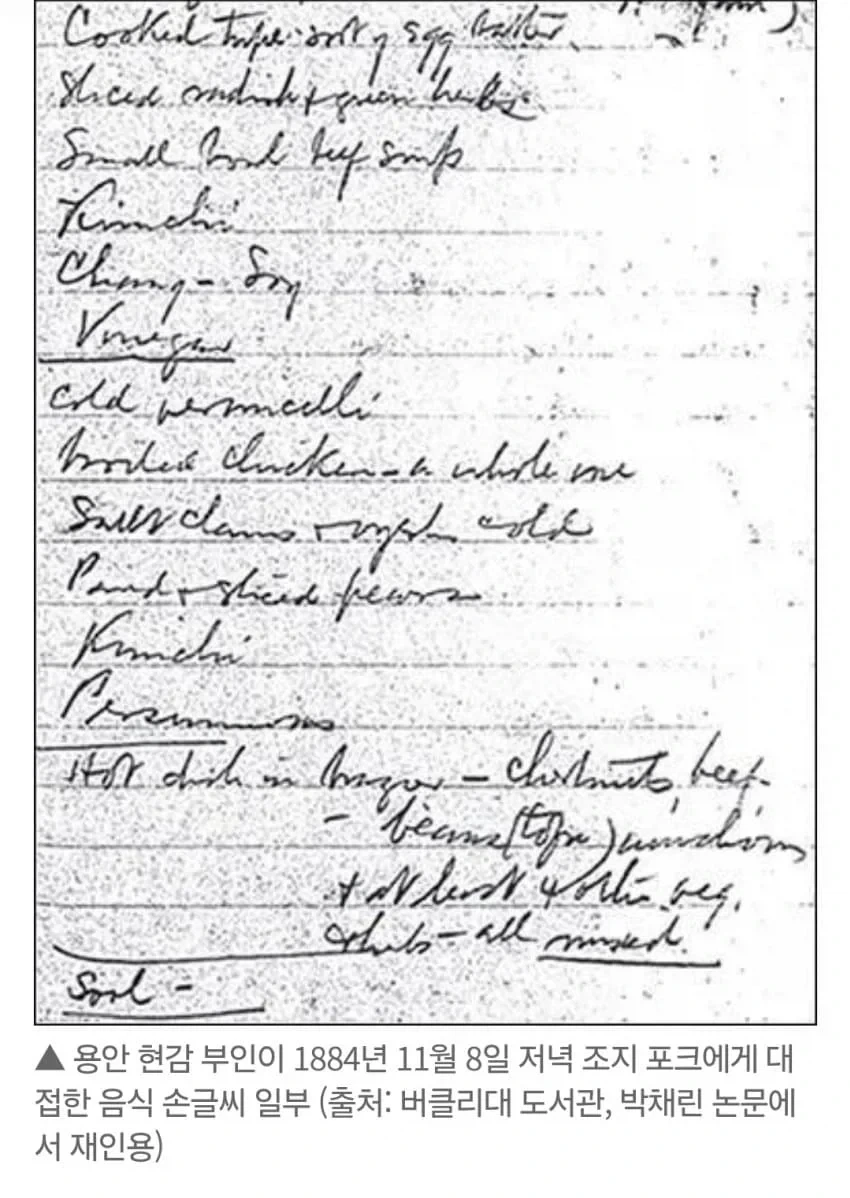 Cooked tripe sort of egg batter
Sliced radish + green herbs
Small bowl beef soup
Kimchi
Chang - Soy
Vinegar
Cold vermicelli
broiled chicken - a whole one
Salt clams + oysters cold
Pared + sliced pears
Kimchi
Persimmons
Hot dish in - chestnuts, beef
- beans (tofu)
+ at least 4 other veg.
- all mixed.
Sool -
▲ 용안 현감 부인이 1884년 11월 8일 저녁 조지 포크에게 대
접한 음식 손글씨 일부 (출처: 버클리대 도서관, 박채린 논문에
서 재인용)